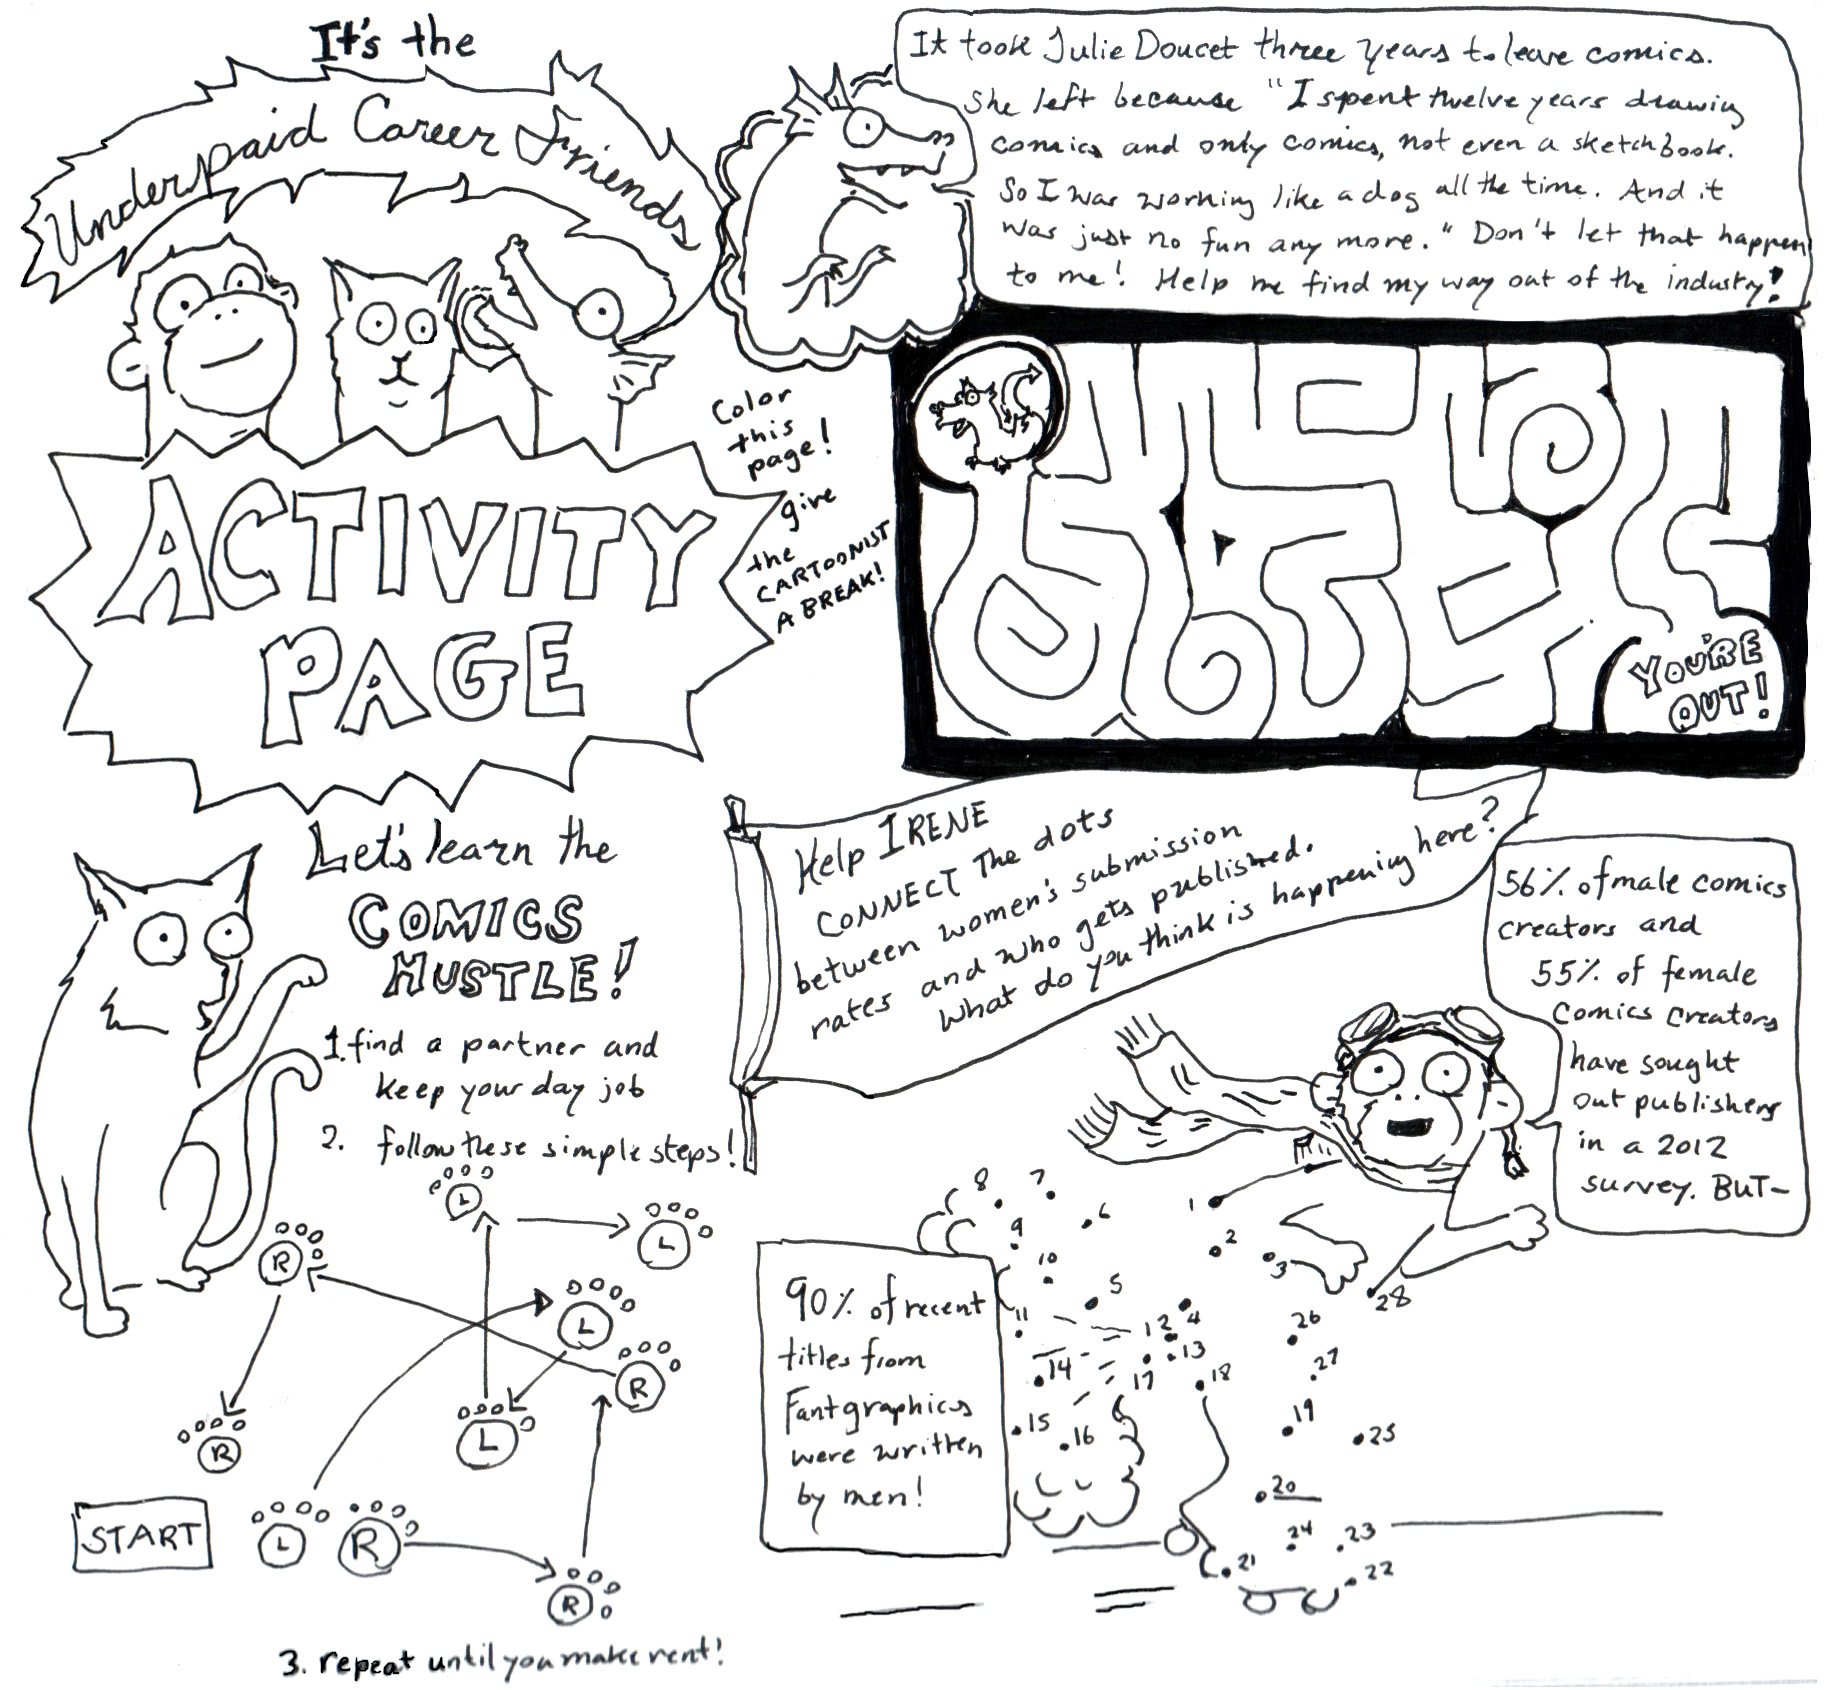 It's the
Underpaid Career Friends
ACTIVITY
PAGE
Color
this
page!
give
the
CARTOONIST
A BREAK!
It took Julie Doucet three years to leave comics.
She left because "I spent twelve years drawing
comics and only comics, not even a sketchbook.
So I was working like a dog all the time. And it
was just no fun any more." Don't let that happen
to me! Help me find my way out of the industry!
YOU'RE
OUT!
Let's learn the
COMICS
HUSTLE!
1. find a partner and
keep your day job
2. follow these simple steps!
L
L
R
L
R
L
R
START
L
R
R
3. repeat until you make rent!
Help IRENE
CONNECT The dots
between women's submission
rates and who gets published.
What do you think is happening here?
56% of male comics
creators and
55% of female
comics creators
have sought
out publishers
in a 2012
survey. BUT-
90% of recent
titles from
Fantgraphics
were written
by men!
1
2
3
4
5
6
7
8
9
10
11
12
13
14
15
16
17
18
19
20
21
22
23
24
25
26
27
28